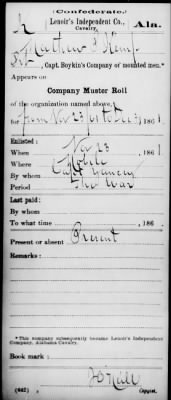 (Confederate.)
L Lenoir's Independent Co., Ala.
Cavalry.
Mathew J Kemp
Pvt, Capt. Boykin's Company of mounted men.*
Appears on
Company Muster Roll
of the organization named above,
for from Nov 23/61 to Dec 31, 1861.
Enlisted:
When Nov 23, 1861.
Where Mobile
By whom Capt Yancey
Period The War
Last paid:
By whom
To what time , 186 .
Present or absent Present
Remarks:
*This company subsequently became Lenoir's Independent
Company, Alabama Cavalry.
Book mark:
(642) Copyist.